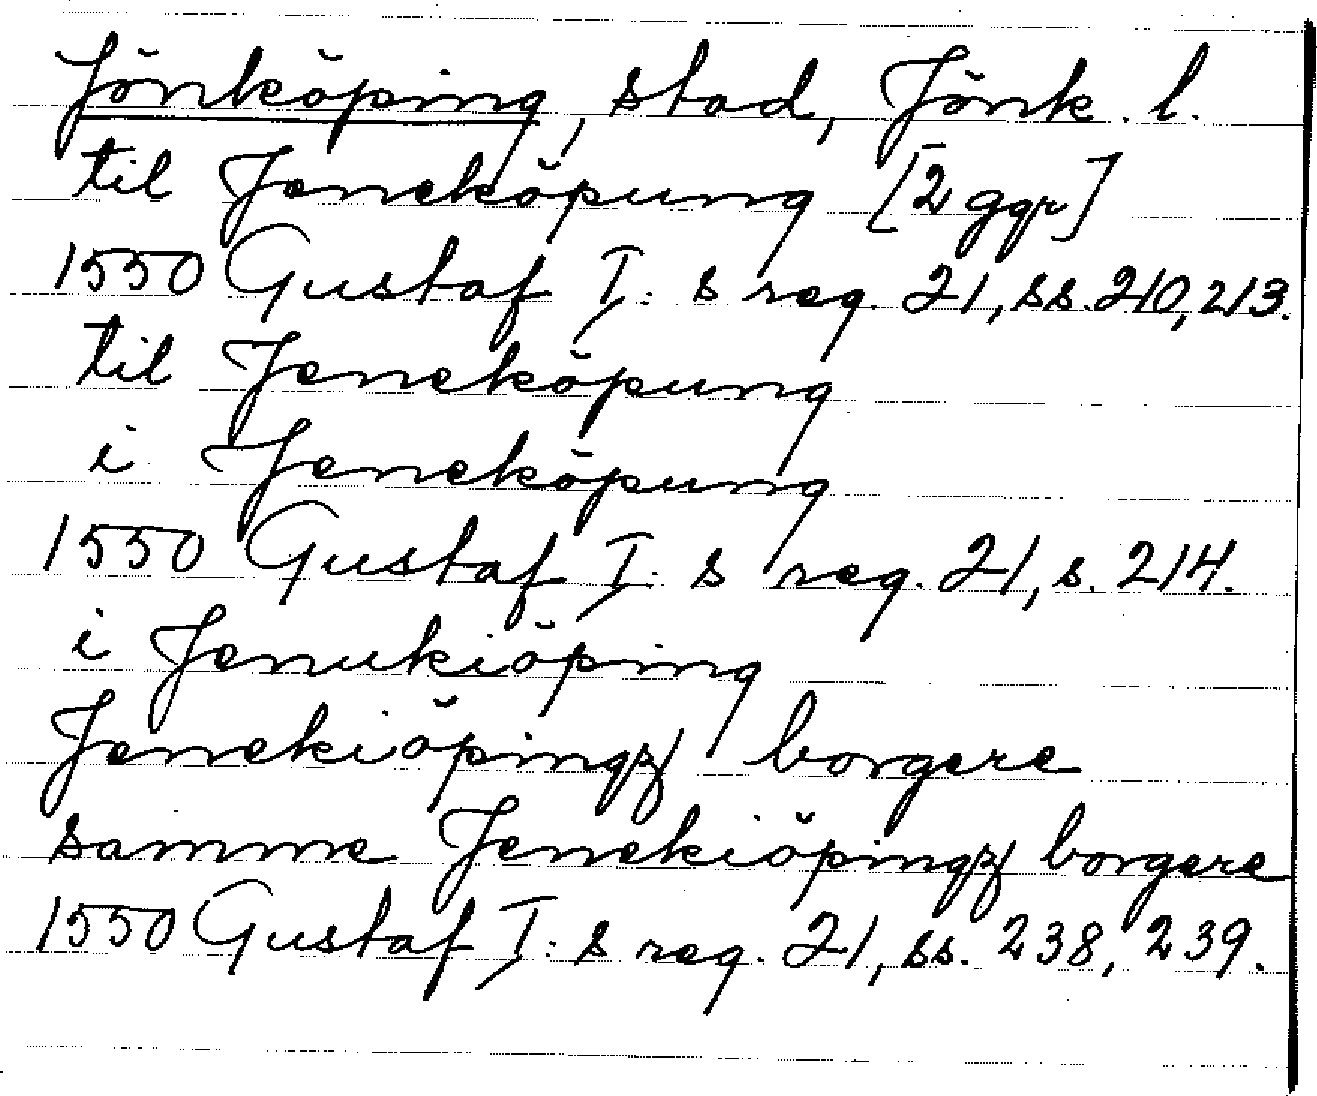 Jönköping, stad, Jönk. l.
til Jeneköpung [2 ggr]
1550 Gustaf I: s reg. 21, ss. 210, 213.
til Jeneköpung
i Jeneköpung
1550 Gustaf I: s reg. 21, s. 214.
i Jenukiöping
Jenekiöpingz borgere
samme Jenekiöpingz borgere
1550 Gustaf I: s reg. 21, ss. 238, 239.